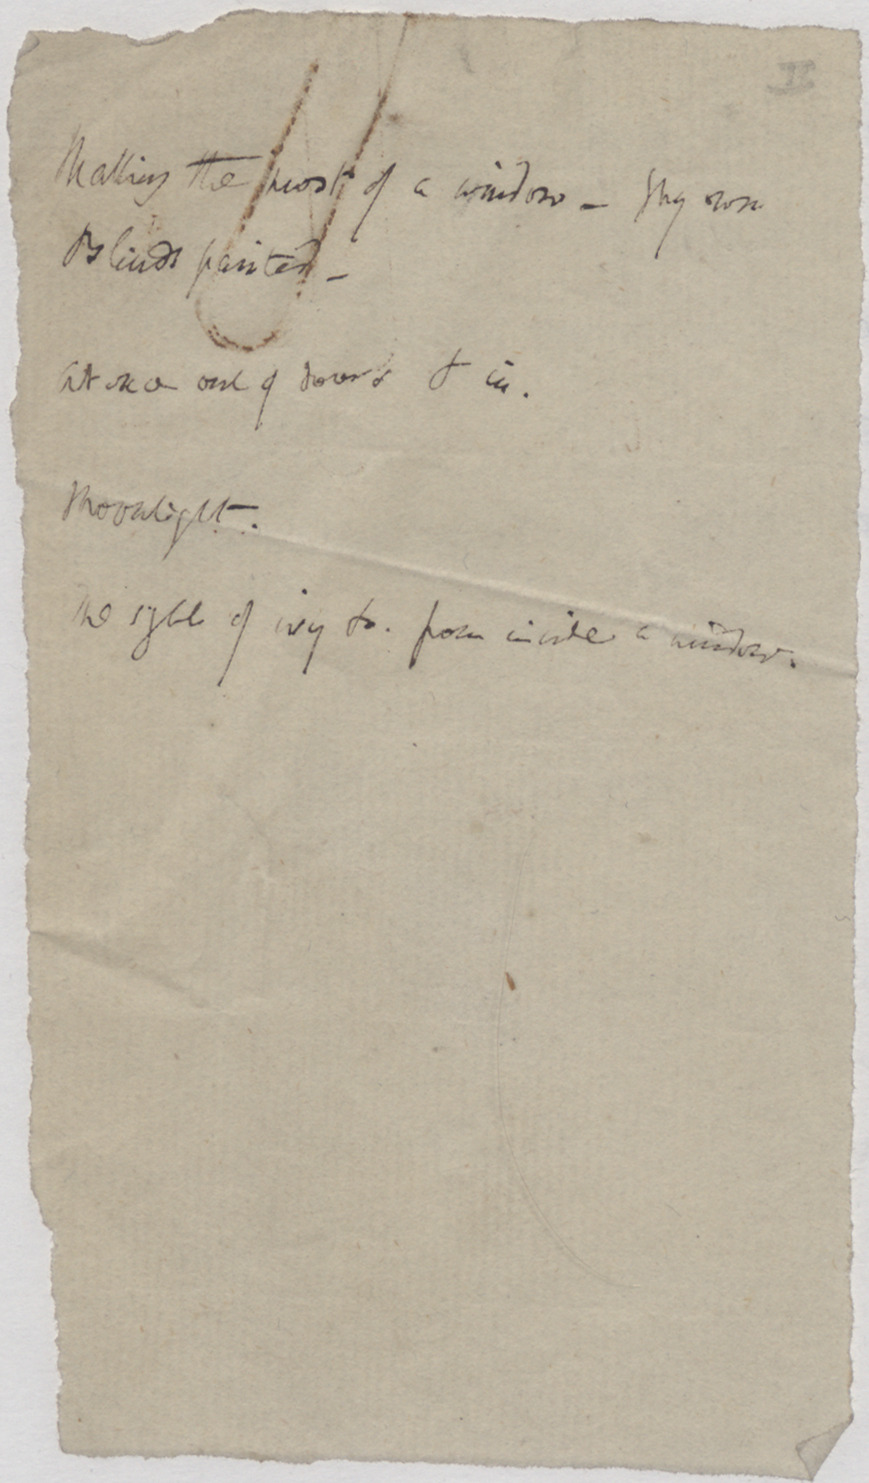 II
Making the most of a window - My own
Blinds painted -
At once out of doors & in.
Moonlight.
The sight of ivy &c. from inside a window.